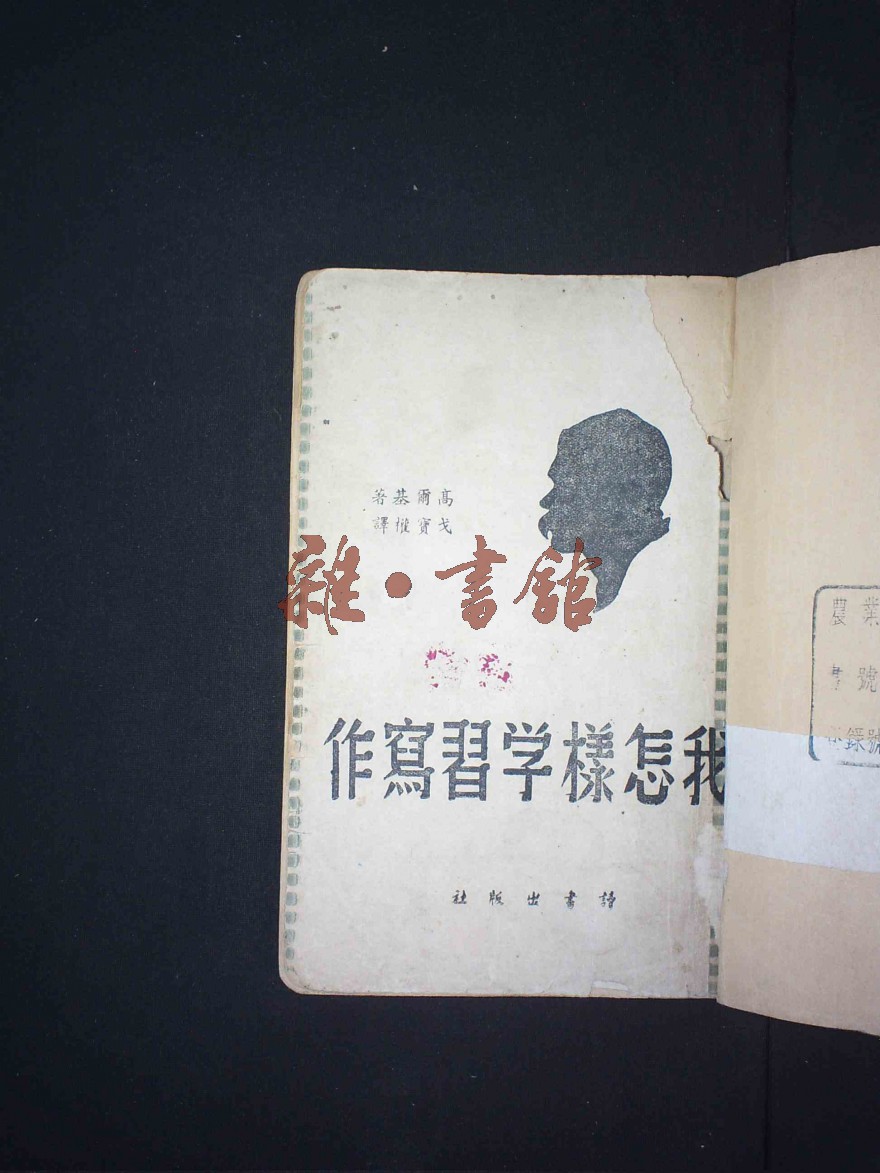 高爾基著
戈寶權譯
雜·書館
我怎樣学習寫作
讀書出版社
農業
書號
錄號